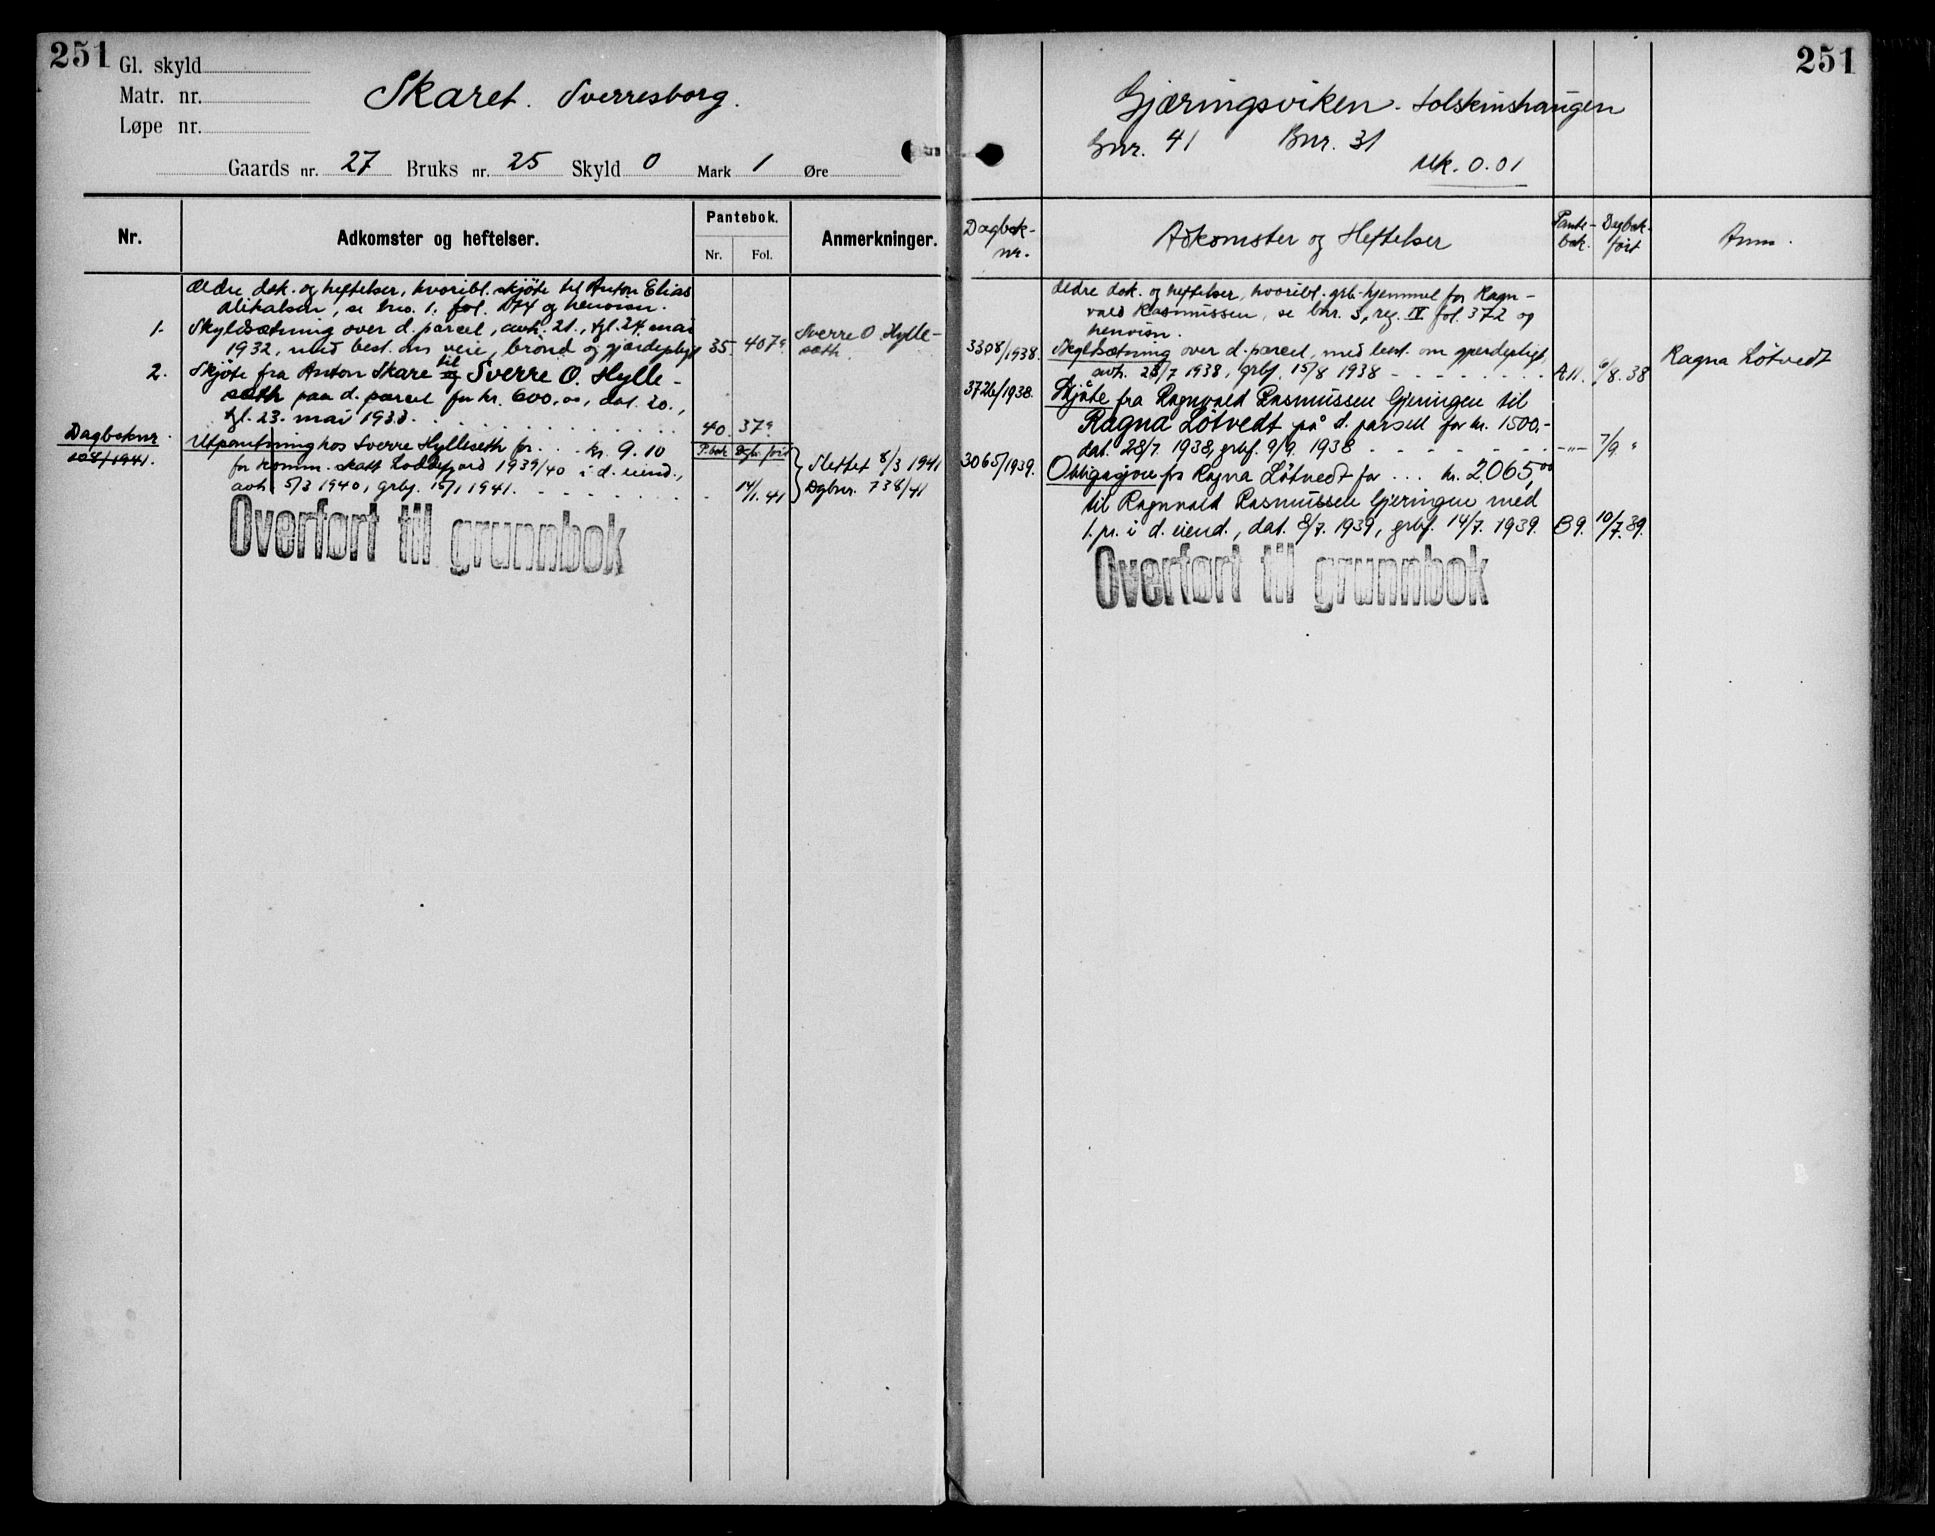 251
Gl. skyld
Matr. nr.
Løpe nr.
Skaret. Sverresborg.
Gaards nr. 27 Bruks nr. 25 Skyld 0 Mark 1 Øre
Nr.
Adkomster og heftelser.
Pantebok.
Nr. Fol.
Anmerkninger.
Ældre dok. og heftelser, hvoribl. skjöte til Anton Elias
se bno. 1. fol. og henvisn.
1. Skyldsætning over d. parcel, avh. 21., tgl. 24. mai
1932, med best. om veie, brönd og gjærdeplygt 35. 407a
Sverre O Hylle-
sæth.
2. Skjöte fra Anton Skare til Sverre O. Hylle-
sæth paa d. parcel for kr. 600,00, dat. 20.,
tgl. 23. mai 1933. 40. 37a
Dagboknr.
108/1941.
Utpantning hos Sverre Hylleseth for . . kr. 9.10 P.bok Dgb. ført
for komm. skatt Loddefjord 1939/40 i d. eiend.,
avh. 5/3 1940, grbf. 15/1 1941. 14/1.41
Slettet 8/3 1941
Dgbnr. 738/41
Overført til grunnbok
251
Gjæringsviken. Solskinshaugen
Gnr. 41 Bnr. 31
Mk. 0.01
Dagbok-
nr.
Adkomster og Heftelser
Pante-
bok.
Dagbok.
ført
Anm.
Ældre dok. og heftelser, hvoribl. grb. hjemmel for Ragn-
vald Rasmussen, se bnr. 3, reg. IV fol. 372 og
henvisn.
3308/1938. Skyldsætning over d. parcel, med best. om gjerdepligt,
avh. 28/7 1938, grbf. 15/8 1938 A11. 6/8.38
Ragna Løtvedt
3726/1938. Skjøte fra Ragnvald Rasmussen Gjeringen til
Ragna Løtvedt på d. parsell for kr. 1500,-
dat. 28/7. 1938, grbf. 9/9. 1938 -"- 7/9 "
3065/1939. Obligasjon fra Ragna Løtvedt for ... kr. 2065,00
til Ragnvald Rasmussen Gjeringen med
1. pr. i d. eiend., dat. 8/7. 1939, grbf. 14/7. 1939. B9. 10/7.39.
Overført til grunnbok